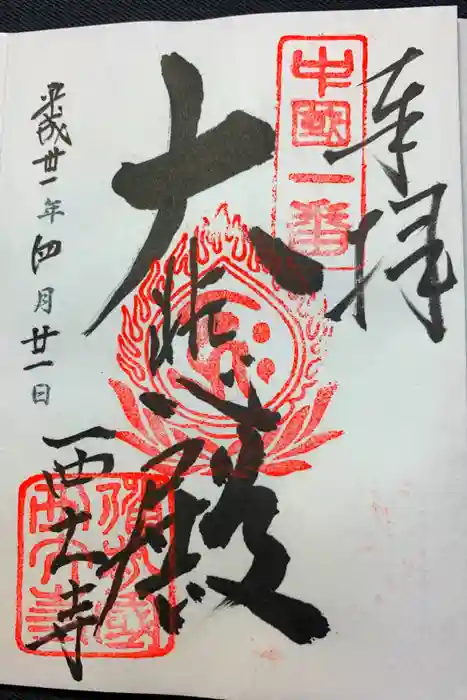 奉拝
中國一番
大悲殿
平成卅一年四月廿一日
西大寺
備前國
西大寺